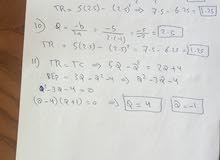 TR = 5(2.5) - (2.5)² ⇒ 7.5 - 6.25 = 1.25
10) Q = -b/2a = -5/2(-1) = -5/-2 = 2.5
TR = 5(2.5) - (2.5)² = 7.5 - 6.25 = 1.25
11) TR = TC ⇒ 5Q - Q² = 2Q + 4
BEP = 3Q - Q² - 4 ⇒ Q² - 3Q - 4
Q² - 3Q - 4 = 0
(Q - 4)(Q + 1) = 0 ⇒ Q = 4 Q = -1